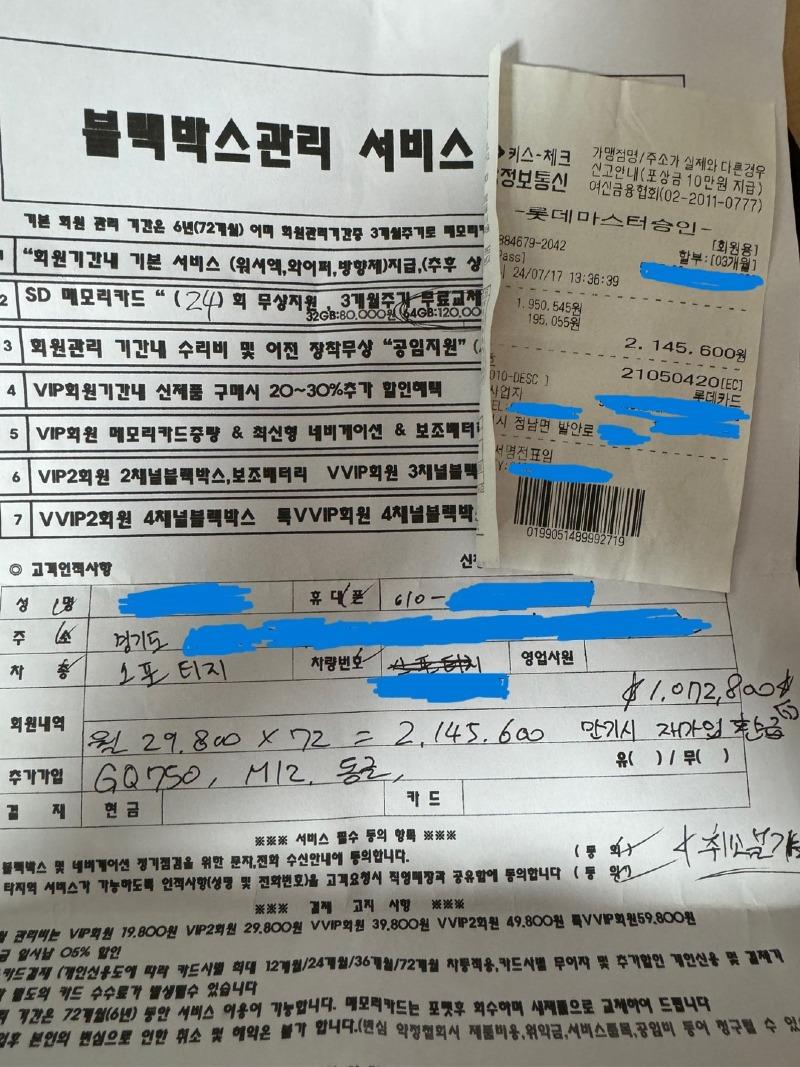 블랙박스관리 서비스
기본 회원 관리 기간은 6년(72개월) 이며 회원관리기간중 3개월주기로 메모리
1 "회원기간내 기본 서비스 (워셔액,와이퍼,방향제)지급,(추후 상
2 SD 메모리카드 " (24) 회 무상지원 , 3개월주기 무료교체
32GB:80,000원 64GB:120,00
3 회원관리 기간내 수리비 및 이전 장착무상 "공임지원" (
4 VIP회원기간내 신제품 구매시 20~30%추가 할인혜택
5 VIP회원 메모리카드증량 & 최신형 네비게이션 & 보조배터리
6 VIP2회원 2채널블랙박스,보조배터리 VVIP회원 3채널블랙
7 VVIP2회원 4채널블랙박스 특VVIP회원 4채널블랙박
키스-체크
정보통신
가맹점명/주소가 실제와 다른경우
신고안내(포상금 10만원 지급)
여신금융협회(02-2011-0777)
-롯데마스터승인-
884679-2042 [회원용]
Pass] 할부:[03개월]
24/07/17 13:36:39
1.950.545원
195.055원
2.145.600원
010-DESC ] 21050420[EC]
사업자 롯데카드
시 정남면 발안로
서명전표임
0199051489992719
◎ 고객인적사항 신
성 명 휴대폰 010-
주 소 경기도
차 종 스포티지 차량번호 스포티지 영업사원
회원내역 1,072,800
월 29.800 × 72 = 2.145.600 만기시 재가입 환급금
추가가입 GQ750, M12, 동글, 유( ) / 무( )
결 재 현금 카드
※※※ 서비스 필수 동의 항목 ※※※
블랙박스 및 네비게이션 정기점검을 위한 문자,전화 수신안내에 동의합니다. (동 의)
타지역 서비스가 가능하도록 인적사항(성명 및 전화번호)을 고객요청시 직영매장과 공유함에 동의합니다 (동 의) 취소불가
※※※ 결제 고지 사항 ※※※
관리비는 VIP회원 19.800원 VIP2회원 29.800원 VVIP회원 39.800원 VVIP2회원 49.800원 특VVIP회원59.800원
금 일시납 05% 할인
카드결제 (개인신용도에 따라 카드사별 최대 12개월/24개월/36개월/72개월 차등적용,카드사별 무이자 및 추가할인 개인신용 및 결제기
별도의 카드 수수료가 발생될수 있습니다
기간은 72개월(6년) 동안 서비스 이용이 가능합니다. 메모리카드는 포멧후 회수하며 새제품으로 교체하여 드립니다
입후 본인의 변심으로 인한 취소 및 해약은 불가 합니다.(변심 약정철회시 제품비용,위약금,서비스품목,공임비 등이 청구될 수 있